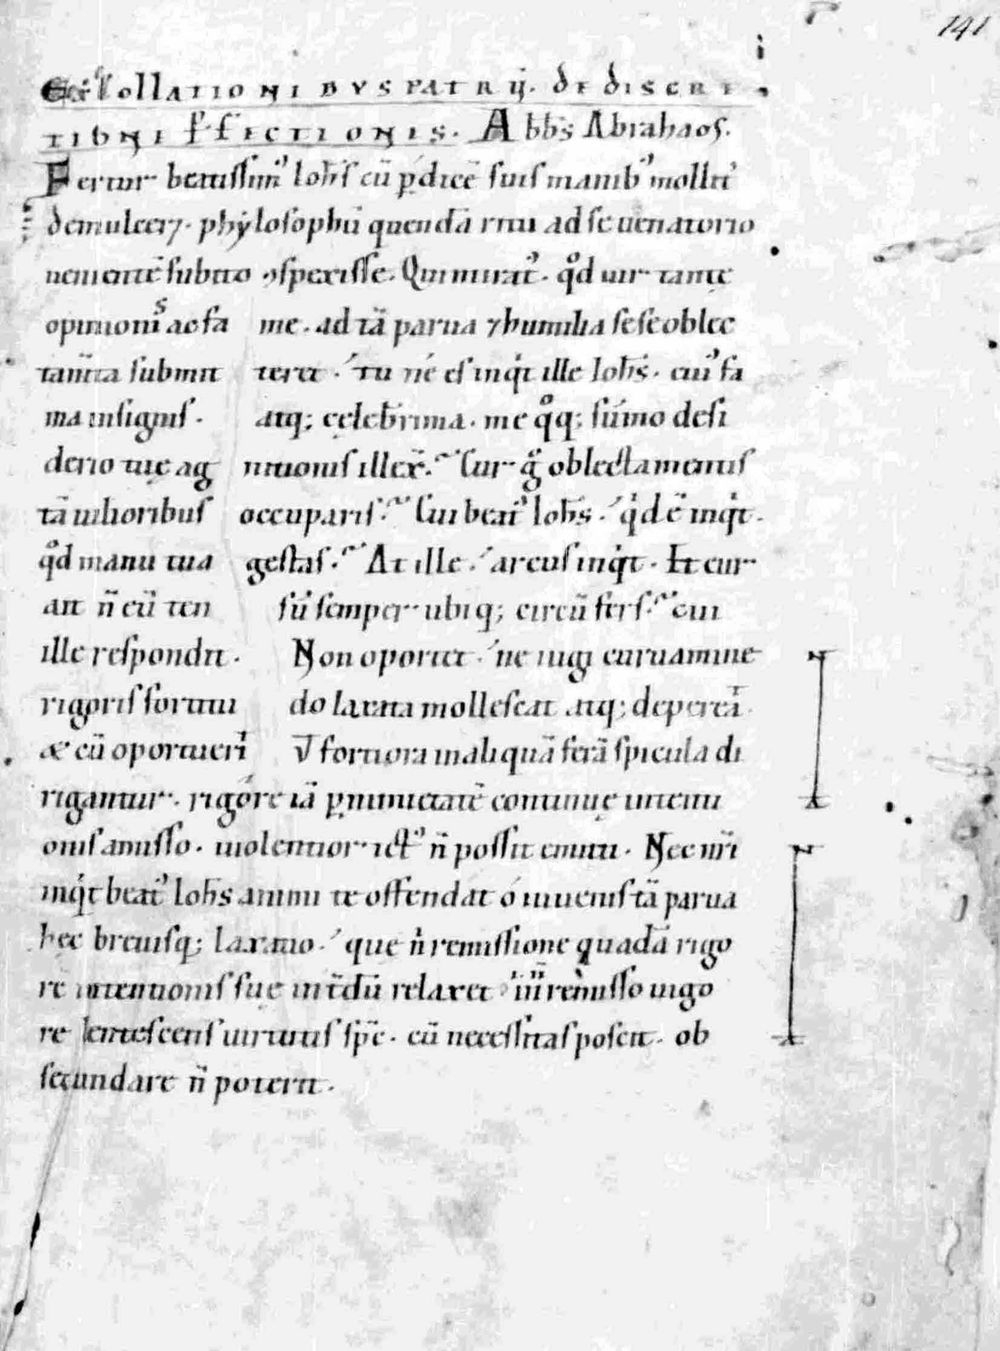 141
Ex Collationibus patrū. de discre
tibni ꝑfectionis. Abb̄s Abrahaos.
Fertur beatissim᷒ Ioh̄s cū ꝑdicē suis manib᷒ mollit᷒
demulcer⁊. phẏlosophū quendā ritu ad se uenatorio
uenientē subito ꝯspexisse. Qui mirat᷒. qd̊ uir tante
opinionis ac fa me. ad tā parua ⁊ humilia sese oblec
tam̄ta submit teret. Tu né es inqͥt ille Ioh̄s. cui᷒ fa
ma insignis. atq; celeb̄rima. me qͦq; sūmo desi
derio tuę ag nitionis illex̄. Cur gͦ oblectamentis
tā uilioribus occuparis. Cui beat᷒ Ioh̄s. qͥd ē inqͥt.
qd̊ manu tua gestas. At ille. arcus inqͥt. Et cur
ait n̄ eū ten sū semper ubiq; circū fers. cui
ille respondit. Non oportet. ne iugi curuamine
rigoris fortitu do laxata mollescat atq; depereat
& cū oportuerit ū fortiora in aliquā ferā spicula di
rigantur. rigore iā ꝑ nimietatē continuę intenti
onis amisso. uiolentior ict᷒ n̄ possit emitti. Nec nr̄i
inqͥt beat᷒ Ioh̄s animi te offendat ó iuuenis tā parua
hęc breuisq; laxatio. que nͥ remissione quadā rigo
rē intentionis suę int̄dū relaxet īm̄ remisso uigo
re lentescens uirtutis sp̄c. cū necessitas poscit. ob
secundare n̄ poterit.